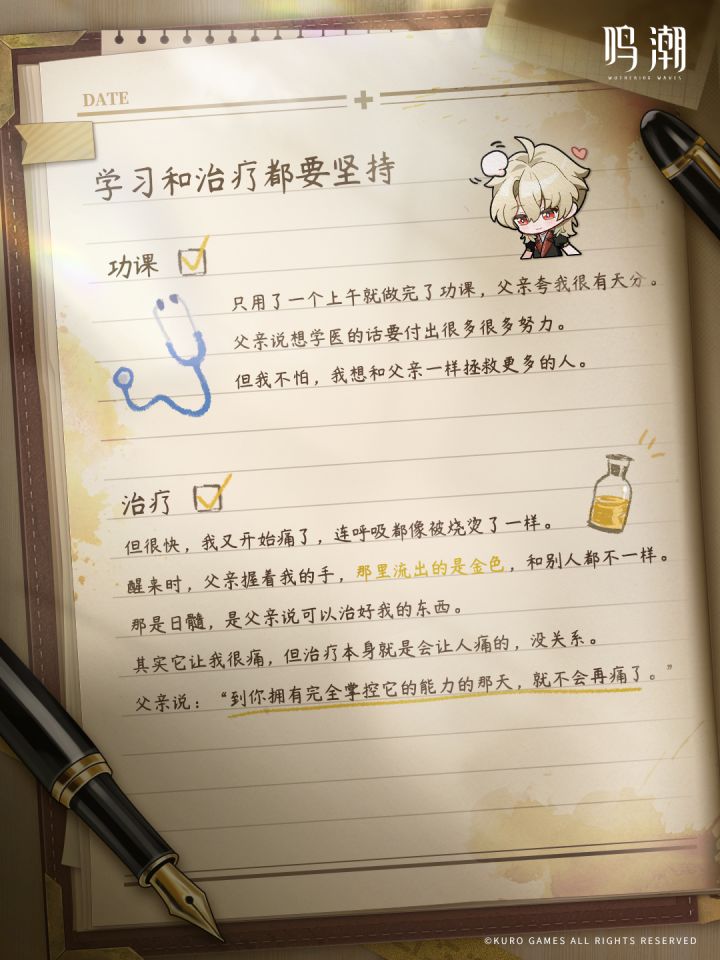 鸣潮
WUTHERING WAVES
DATE
学习和治疗都要坚持
功课
只用了一个上午就做完了功课，父亲夸我很有天分。
父亲说想学医的话要付出很多很多努力。
但我不怕，我想和父亲一样拯救更多的人。
治疗
但很快，我又开始痛了，连呼吸都像被烧烫了一样。
醒来时，父亲握着我的手，那里流出的是金色，和别人都不一样。
那是日髓，是父亲说可以治好我的东西。
其实它让我很痛，但治疗本身就是会让人痛的，没关系。
父亲说：“到你拥有完全掌控它的能力的那天，就不会再痛了。”
©KURO GAMES ALL RIGHTS RESERVED